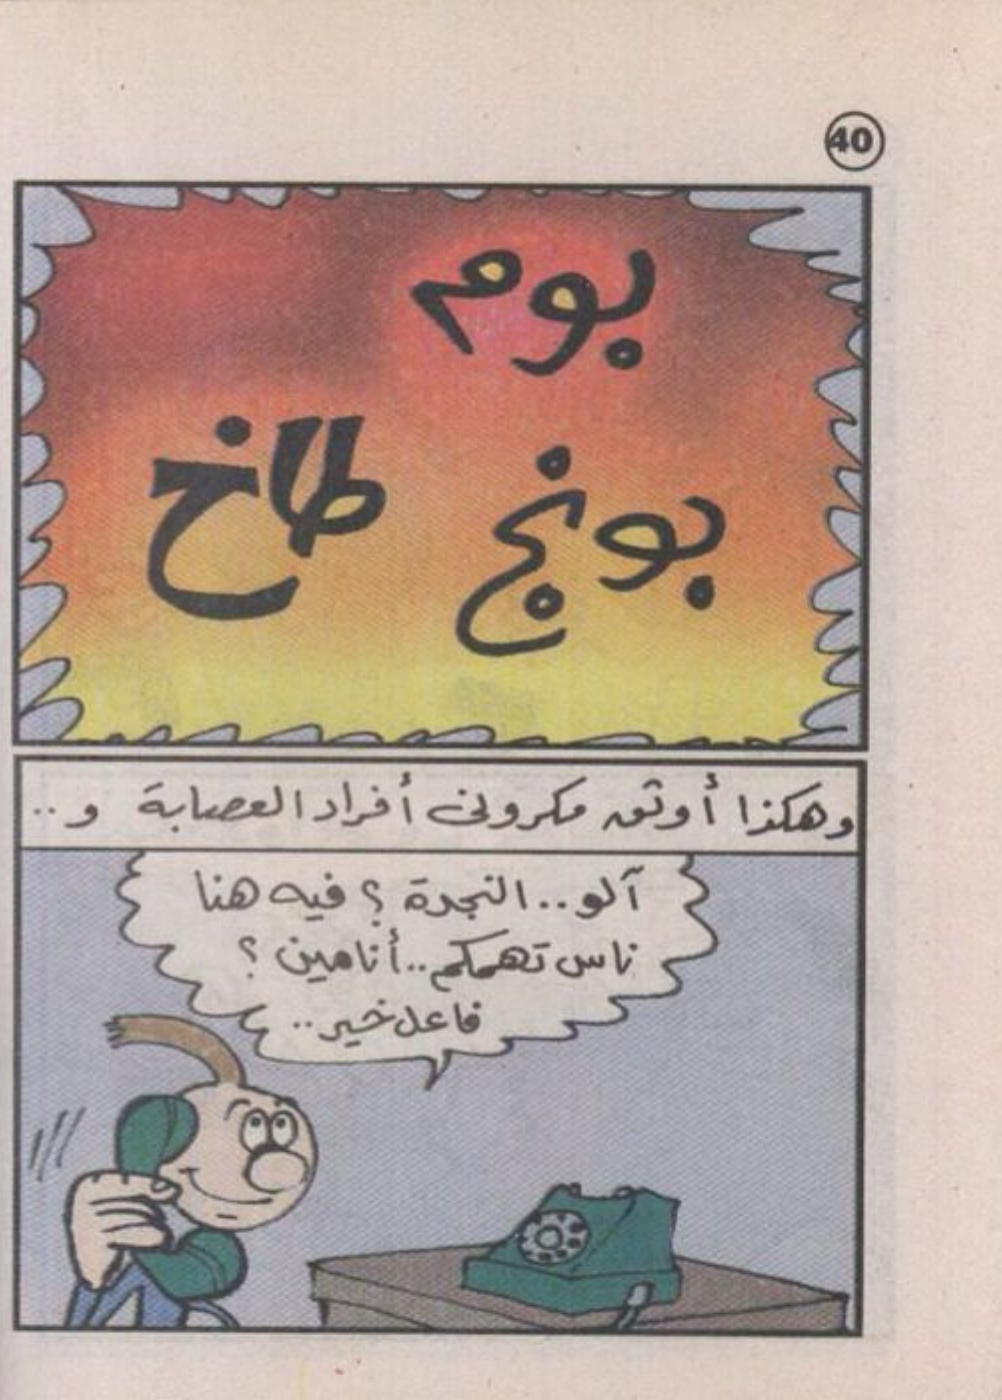 40
بوم
بونج طاخ
وهكذا أوثق مكرونى أفراد العصابة و..
آلو.. النجدة ؟ فيه هنا
ناس تهمكم.. أنا مين ؟
فاعل خير..